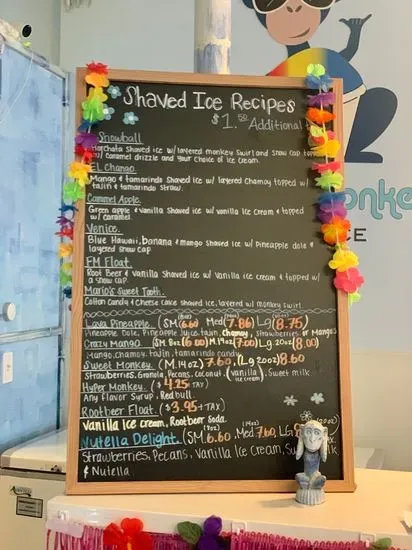 Shaved Ice Recipes
$1.50 Additional
Snowball
Horchata Shaved ice w/ layered monkey swirl and snow cap topped
w/ caramel drizzle and your choice of ice cream.
EL Chango
Mango & tamarindo Shaved ice w/ layered Chamoy topped w/
tajin & tamarindo Straw.
Caramel Apple
Green apple & vanilla Shaved ice w/ vanilla ice cream & topped
w/ caramel.
Venice
Blue Hawaii, banana & mango shaved ice w/ Pineapple dole &
layered snow cap
FM Float
Root Beer & vanilla Shaved ice w/ vanilla ice cream & topped w/
a snow cap.
Mario's Sweet Tooth
Cotton candy & Cheese Cake Shaved ice, layered w/ monkey swirl
Lava Pineapple (SM 6.60 Med 7.86) Lg (8.75)
Pineapple Dole, Pineapple Juice, tajin, Chamoy, Strawberries or Mango)
Crazy Mango (SM. 8oz (6.00) M. 14oz (7.00) Lg. 20oz (8.00)
Mango, chamoy, tajin, tamarindo candy
Sweet Monkey (M. 14oz) 7.60, (Lg 20oz) 8.60
Strawberries, Granola, Pecans, coconut, (vanilla ice cream), Sweet milk
Hyper Monkey ($4.25 +TAX)
Any flavor Syrup, Redbull.
Rootbeer Float ($3.95+TAX)
Vanilla Ice cream, Rootbeer Soda.
Nutella Delight (SM. 6.60, Med 7.60, LG
Strawberries, Pecans, Vanilla Ice Cream,
& Nutella